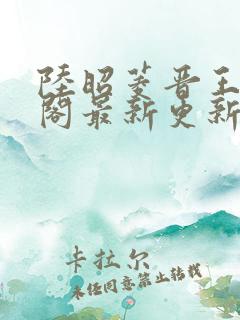 陸昭菱晋王
阁最新更新
卡拉尔
未经同意禁止转载